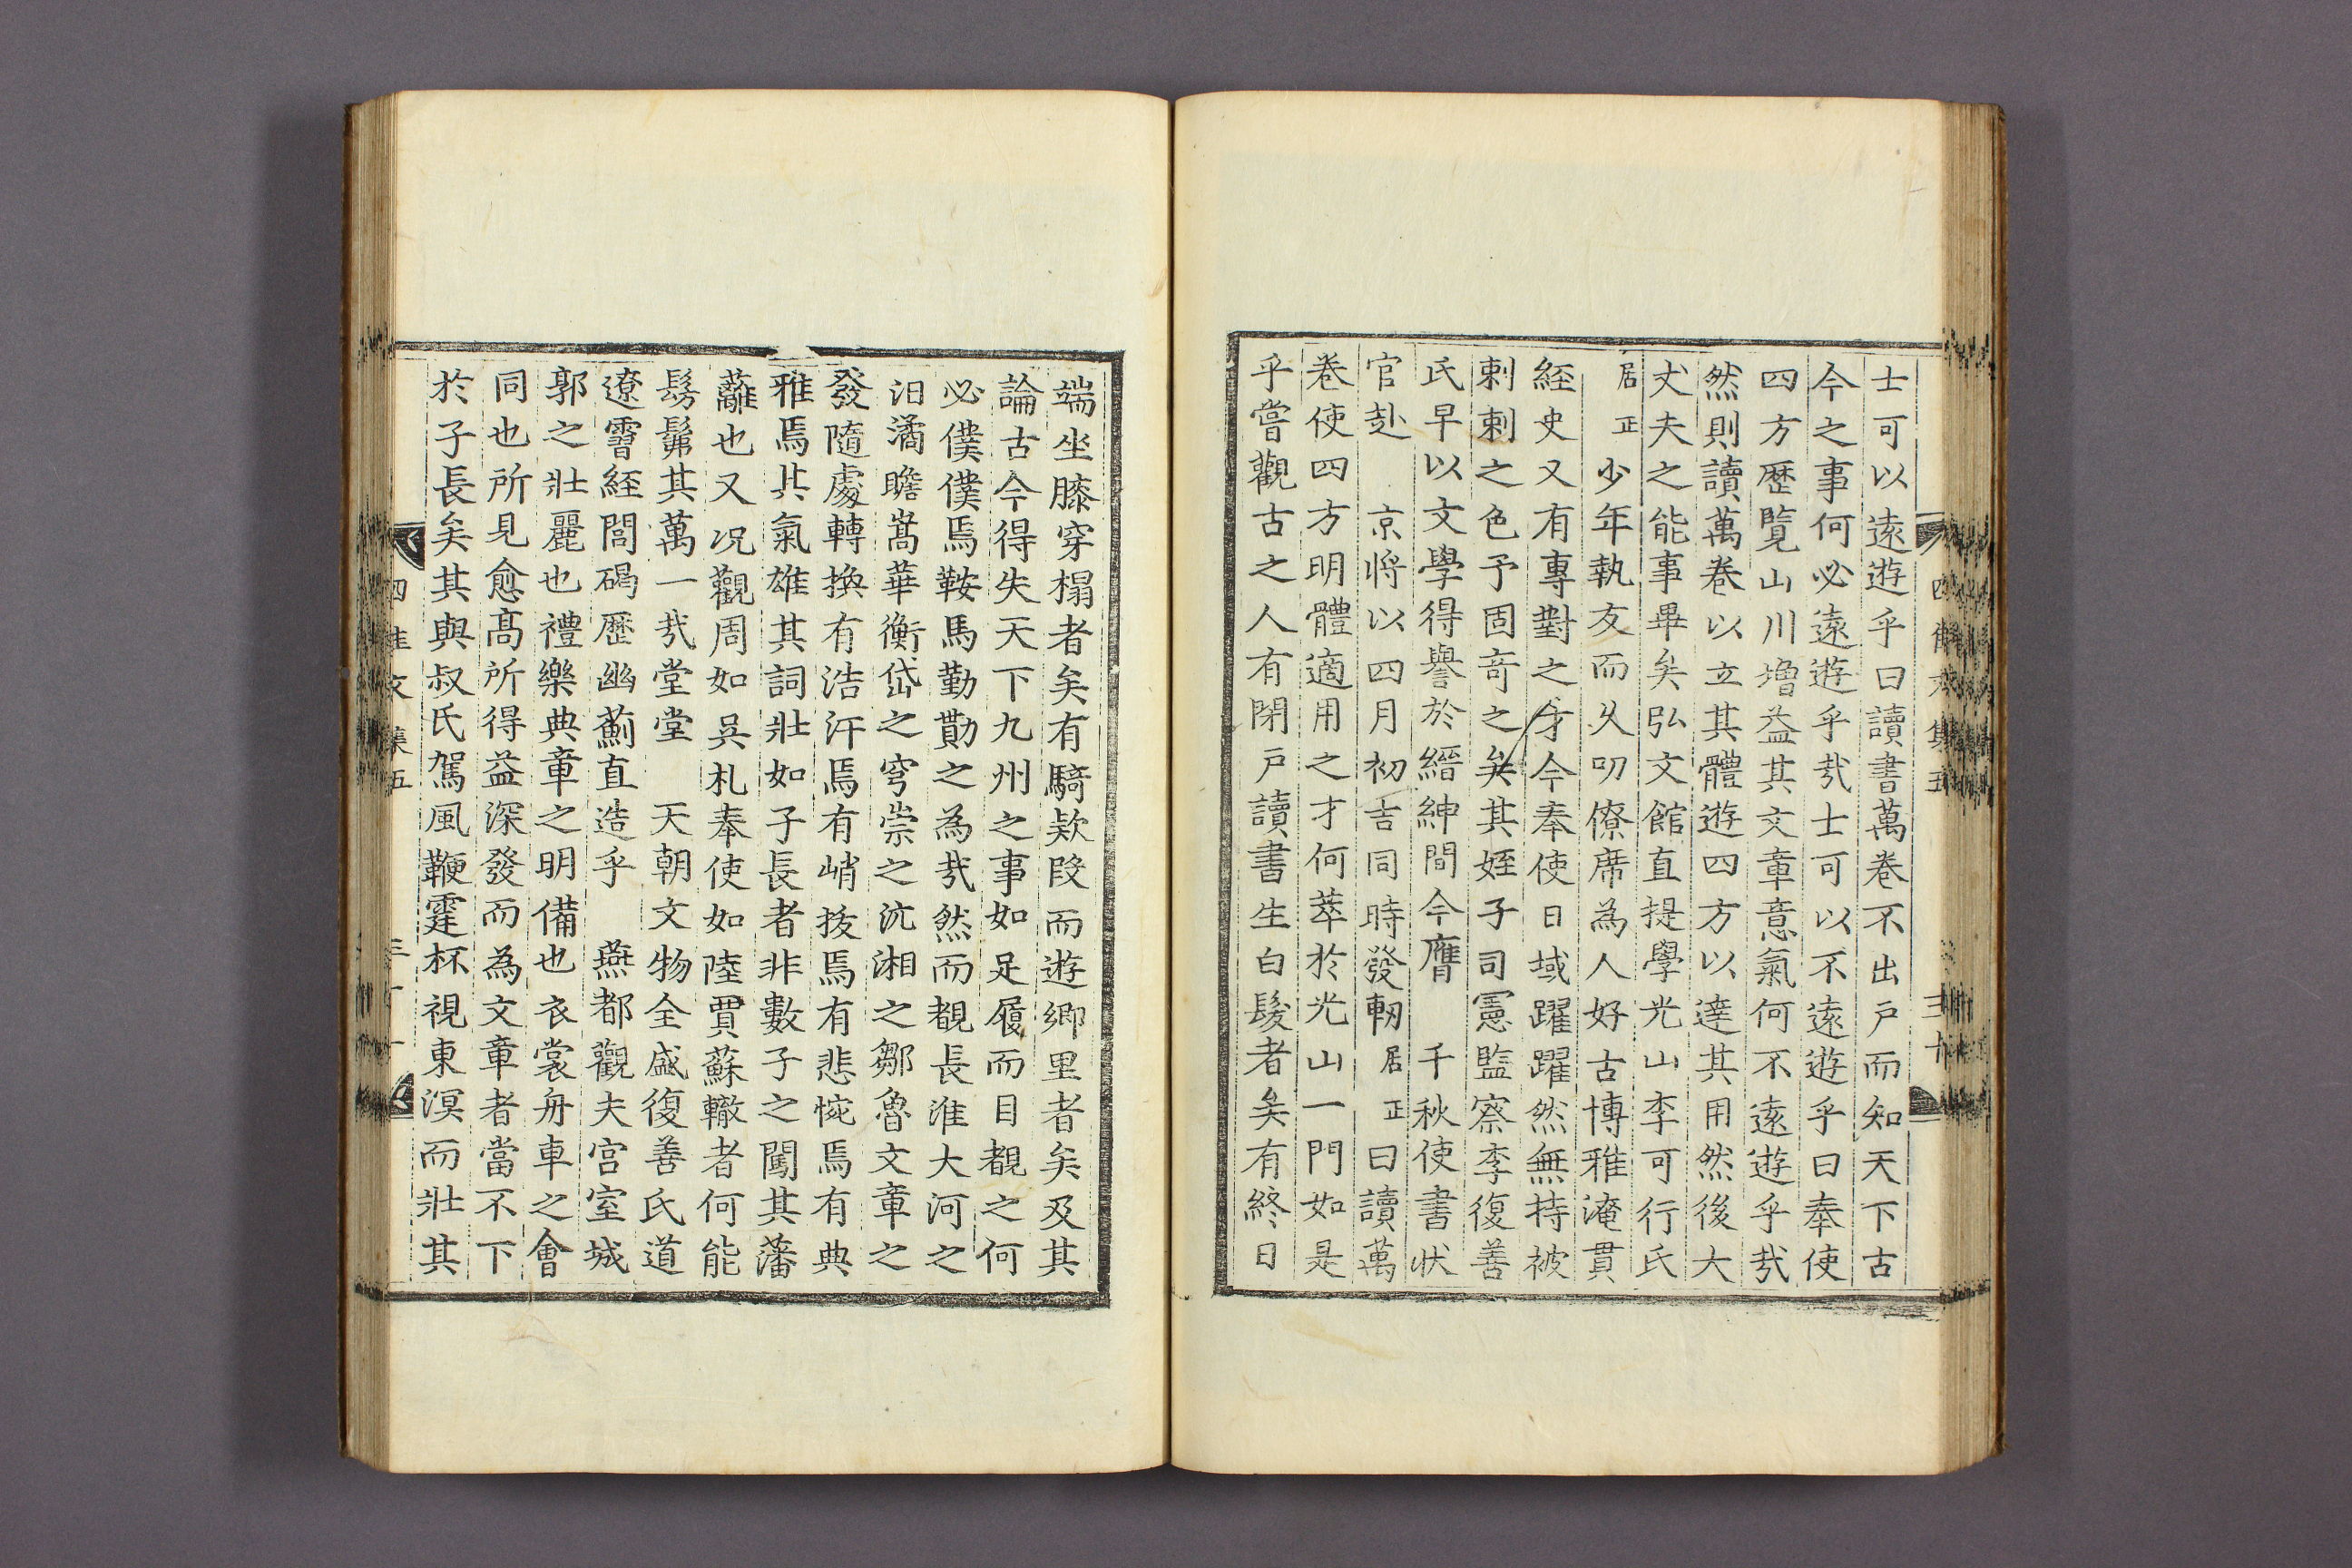 士可以遠遊乎曰讀書萬卷不出戶而知天下古
今之事何必遠遊乎㢤士可以不遠遊乎曰奉使
四方歷覽山川增益其文章意氣何不遠遊乎㢤
然則讀萬卷以立其體遊四方以達其用然後大
丈夫之能事畢矣弘文館直提學光山李可行氏
居正少年執友而乆叨僚席為人好古博雅淹貫
経史又有專對之才今奉使日域躍躍然無持被
刺刺之色予固奇之矣其姪子司憲監察李復善
氏早以文學得譽於縉紳間今膺千秋使書狀
官赴京將以四月初吉同時發軔居正曰讀萬
卷使四方明體適用之才何萃於光山一門如是
乎嘗觀古之人有閉戶讀書生白髮者矣有終日
四佳文集五
三十
端坐膝穿榻者矣有騎欵段而遊鄉里者矣及其
論古今得失天下九州之事如足履而目覩之何
必僕僕焉鞍馬勤勩之為㢤然而覩長淮大河之
汩潏瞻嵩華衡岱之穹崇之沅湘之鄒魯文章之
發隨處轉換有浩汗焉有峭拔焉有悲惋焉有典
雅焉其氣雄其詞壯如子長者非數子之闖其藩
蘺也又况觀周如吳札奉使如陸賈蘇轍者何能
髣髴其萬一㢤堂堂天朝文物全盛復善氏道
遼霫経閭碣歷幽薊直造乎燕都觀夫宮室城
郭之壯麗也禮樂典章之明備也衣裳舟車之會
同也所見愈髙所得益深發而為文章者當不下
於子長矣其與叔氏駕風鞭霆杯視東溟而壯其
四佳文集五
三十一